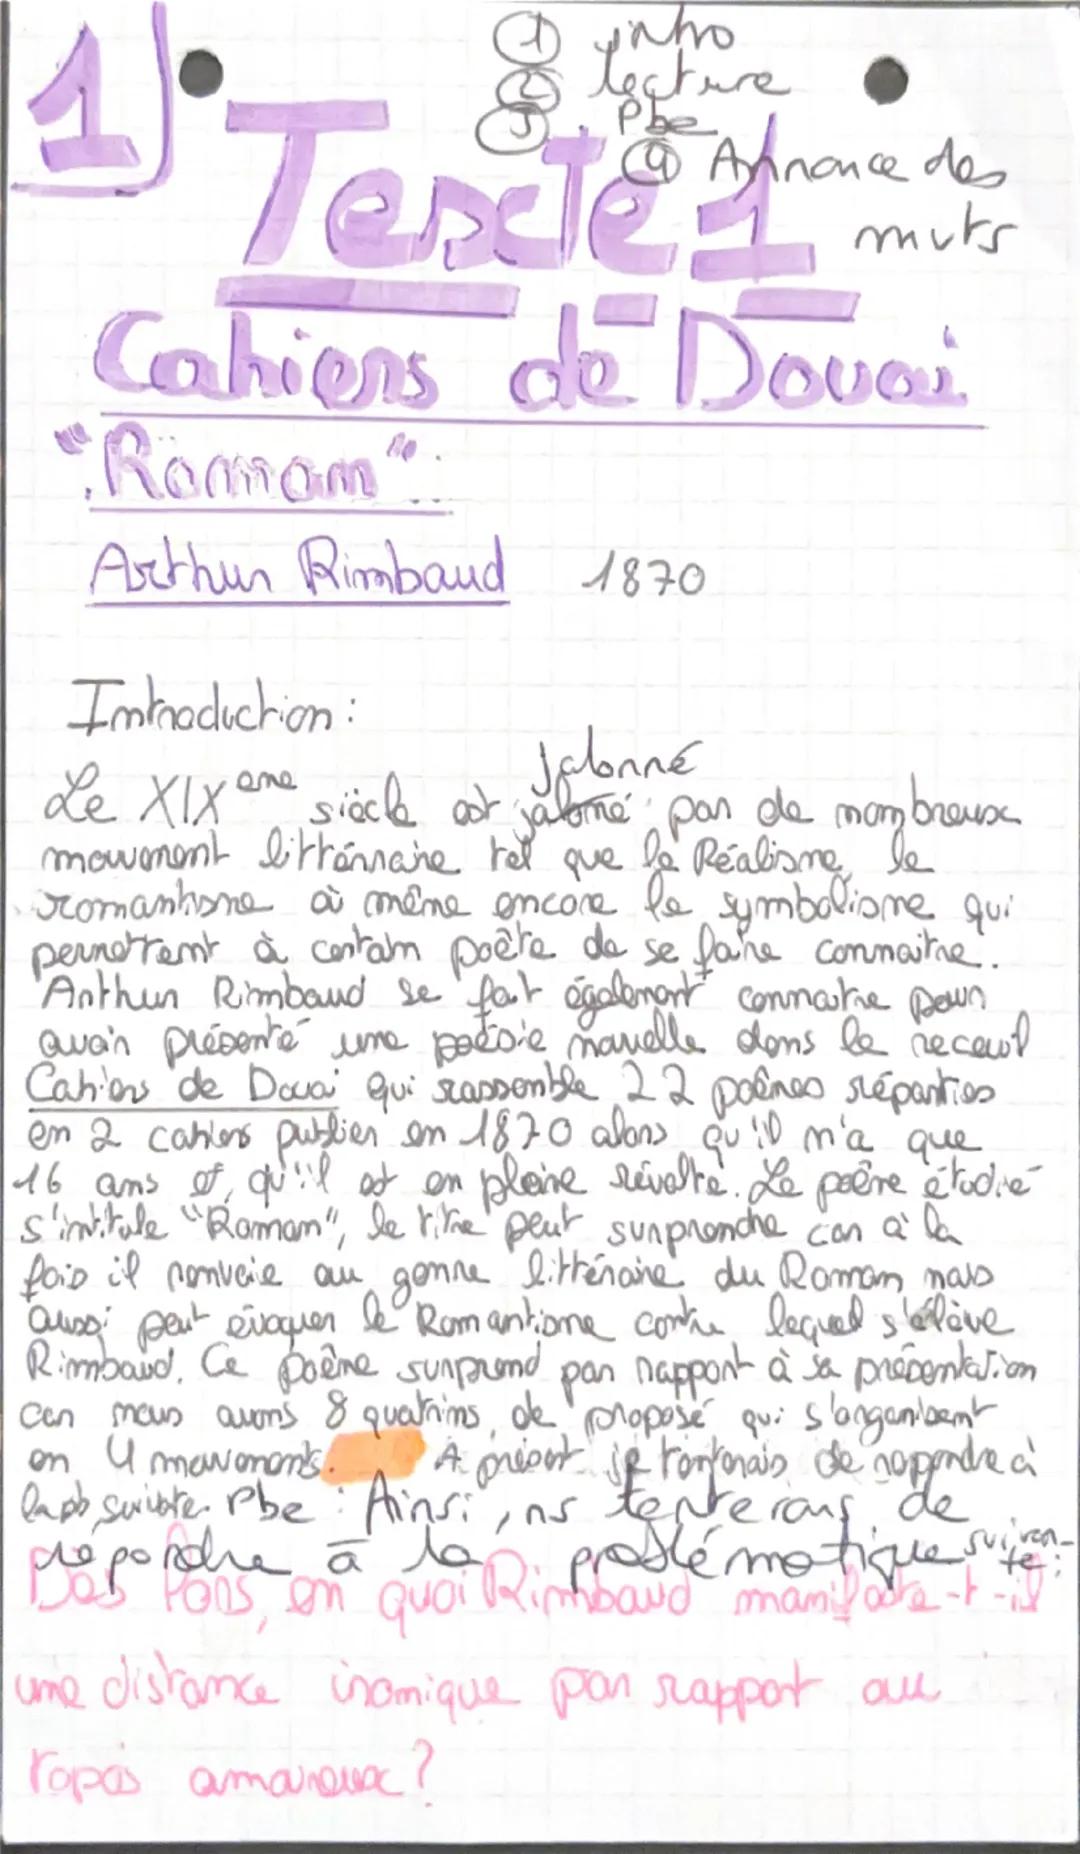 1)
① intro
② lecture
③ Pbe
④ Annonce des
mvts
Texte 1
Cahiers de Douai
"Roman"
Arthur Rimbaud 1870
Introduction :
jalonné
Le XIX eme siècle est jalonné par de nombreux
mouvement littérraire tel que le Réalisme, le
romantisme où même encore le symbolisme qui
permettent à certain poète de se faire connaitre.
Arthur Rimbaud se fait également connaitre pour
avoir présenté une poésie nouvelle dans le receuil
Cahiers de Douai qui rassemble 22 poèmes réparties
en 2 cahiers publier en 1870 alors qu'il n'a que
16 ans et, qu'il est en pleine révolte. Le poème étudié
s'intitule "Roman", le titre peut surprendre car à la
fois il renvoie au genre littéraire du Roman mais
aussi peut évoquer le Romantisme contre lequel s'élève
Rimbaud. Ce poème surprend par rapport à sa présentation
car nous avons 8 quatrins de proposé qui s'organisent
en 4 mouvements. A présent je tenterais de repondre à
la pb suivante. Pbe : Ainsi, ns tenterons de
répondre à la problématique suivante :
Dès lors, en quoi Rimbaud manifeste-t-il
une distance ironique par rapport au
topos amoureux ?